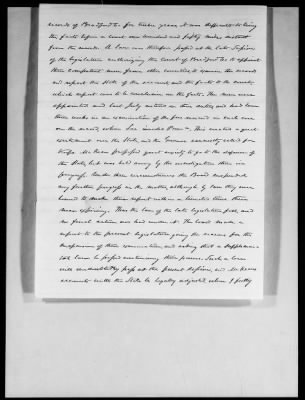 records of Bradford Co. for twelve years it was difficult to bring
the facts before a court one hundred and fifty miles distant
from the records. A law was therefore passed at the late Session
of the legislature authorizing the Court of Bradford Co. to appoint
three competent men from other counties to examine the records
and report the state of the accounts and the facts to the court,
which report was to be conclusive on the facts. The men were
appointed and last July entered on their duties and had been
three weeks in an examination of the fees received in each case
on the record, when Lee invaded Penna. This created a great
excitement over the State and the Governor earnestly called for
troops. Mr. professed great anxiety to go to the defence of
the State but was held away by the investigation then in
progress. Under these circumstances the Board suspended
any further progress in the matter, although by law they were
bound to make their report within a limited time then
near expiring. Thus the law of the late legislature fell, and
no final action was had under it. The board made a
report to the present legislature giving the reasons for the
suspension of their examination, and asking that a supplemen-
tal law be passed continuing their powers. Such a law
will undoubtedly pass at the present session, and Mr.
accounts with the State be legally adjusted when I